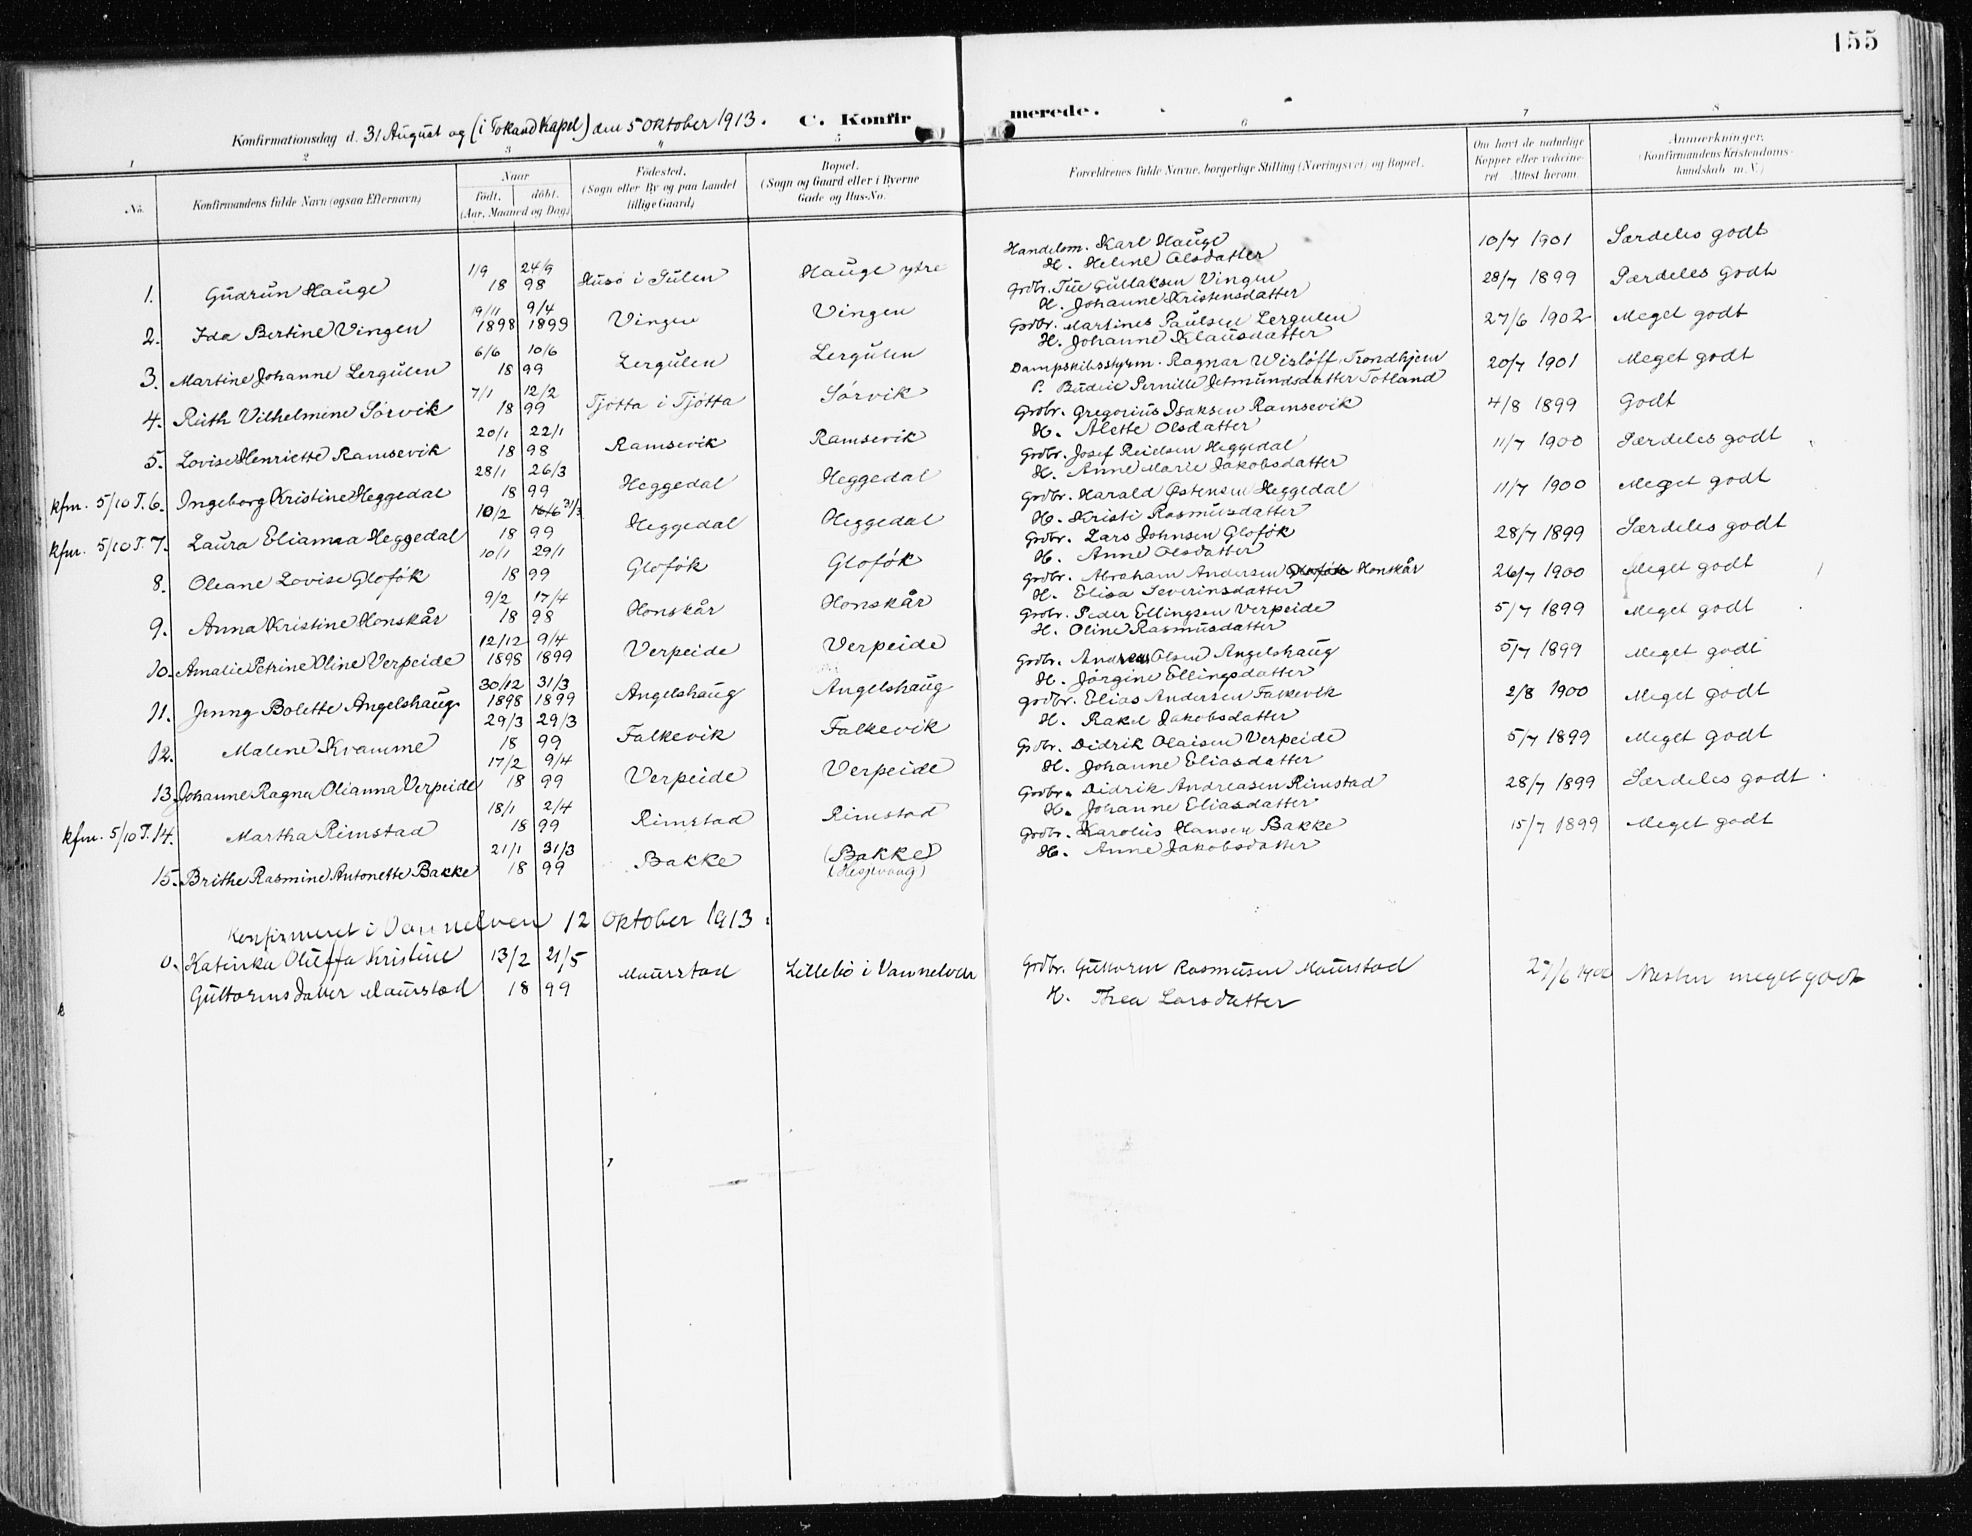 155
Konfirmationsdag d. 31 August og (i Totland Kapel) den 5 Oktober 1913. C. Konfirmerede.
1 2 3 4 5 6 7 8
No. Konfirmandens fulde Navn (ogsaa Efternavn) Naar födt. döbt. (Aar, Maaned og Dag) Födested. (Sogn eller By og paa Landet tillige Gaard) Bopæl. (Sogn og Gaard eller i Byerne Gade og Hus-No. Forældrenes fulde Navne, borgerlige Stilling (Næringsvei) og Bopæl. Om havt de naturlige Kopper eller vakcineret Attest herom. Anmærkninger. (Konfirmandens Kristendomskundskab m. V.)
1. Gudrun Hauge 1/9 24/9 18 98 Husö i Sulen Hauge ytre Handelsm. Karl Hauge 10/7 1901 Særdeles godt
H. Helene Olsdatter
2. Ida Bertine Vingen 19/11 1898 9/4 1899 Vingen Vingen Grdbr. Tue Gullaksen Vingen 28/7 1899 Særdeles godt
H. Johanne Kristensdatter
3. Martine Johanne Lergulen 6/6 10/6 18 99 Lergulen Lergulen Grdbr. Martines Paulsen Lergulen 27/6 1902 Meget godt
H. Johanne Klausdatter
4. Ruth Vilhelmine Sörvik 7/1 12/2 18 99 Tjötta i Tjötta Sörvik Dampskibsstyrm. Ragnar Wislöff, Trondhjem 20/7 1901 Meget godt
P. Budeie Pernille Jetmundsdatter Totland
5. Lovise Henriette Ramsevik 20/1 22/1 18 98 Ramsevik Ramsevik Grdbr. Gregorius Isaksen Ramsevik 4/8 1899 Godt
H. Alette Olsdatter
kfm. 5/10 T. 6. Ingeborg Kristine Heggedal 28/1 26/3 18 99 Heggedal Heggedal Grdbr. Josef Reidsen Heggedal 11/7 1900 Særdeles godt
H. Anne Marie Jakobsdatter
kfm. 5/10 T. 7. Laura Elianna Heggedal 10/2 31/3 18 99 Heggedal Heggedal Grdbr. Harald Östensen Heggedal 11/7 1900 Meget godt
H. Kristi Rasmusdatter
8. Oleane Lovise Gloføk 10/1 29/1 18 99 Gloføk Gloføk Grdbr. Lars Johnsen Gloføk 28/7 1899 Særdeles godt
H. Anne Olsdatter
9. Anna Kristine Honskår 9/2 17/4 18 98 Honskår Honskår Grdbr. Abraham Andersen Gloføk Honskår 26/7 1900 Meget godt
H. Elisa Severinsdatter
10. Amalie Petrine Oline Verpeide 12/12 1898 9/4 1899 Verpeide Verpeide Grdbr. Peder Ellingsen Verpeide 5/7 1899 Meget godt
H. Oline Rasmusdatter
11. Jenny Bolette Angelshaug 30/12 1898 31/3 1899 Angelshaug Angelshaug Grdbr. Andreas Olsen Angelshaug 5/7 1899 Meget godt
H. Jörgine Ellingsdatter
12. Malene Kvamme 29/3 29/3 18 99 Falkevik Falkevik Grdbr. Elias Andersen Falkevik 2/8 1900 Meget godt
H. Rakel Jakobsdatter
13. Johanne Ragna Olianna Verpeide 17/2 9/4 18 99 Verpeide Verpeide Grdbr. Didrik Olaisen Verpeide 5/7 1899 Meget godt
H. Johanne Eliasdatter
kfm. 5/10 T. 14. Martha Rimstad 18/1 2/4 18 99 Rimstad Rimstad Grdbr. Didrik Andreasen Rimstad 28/7 1899 Særdeles godt.
H. Johanne Eliasdatter
15. Brithe Rasmine Antonette Bakke 21/1 31/3 18 99 Bakke (Bakke) Grdbr. Karolus Hansen Bakke 15/7 1899 Meget godt
H. Anne Jakobsdatter
Konfirmeret i Vannelven 12 Oktober 1913:
0. Katinka Oluffa Kristine 13/2 21/5 Maurstad Lillebö i Vannelven Grdbr. Guttorm Rasmusen Maurstad 27/6 1900 Næsten meget godt
Guttormsdatter Maurstad 18 99 H. Thea Larsdatter